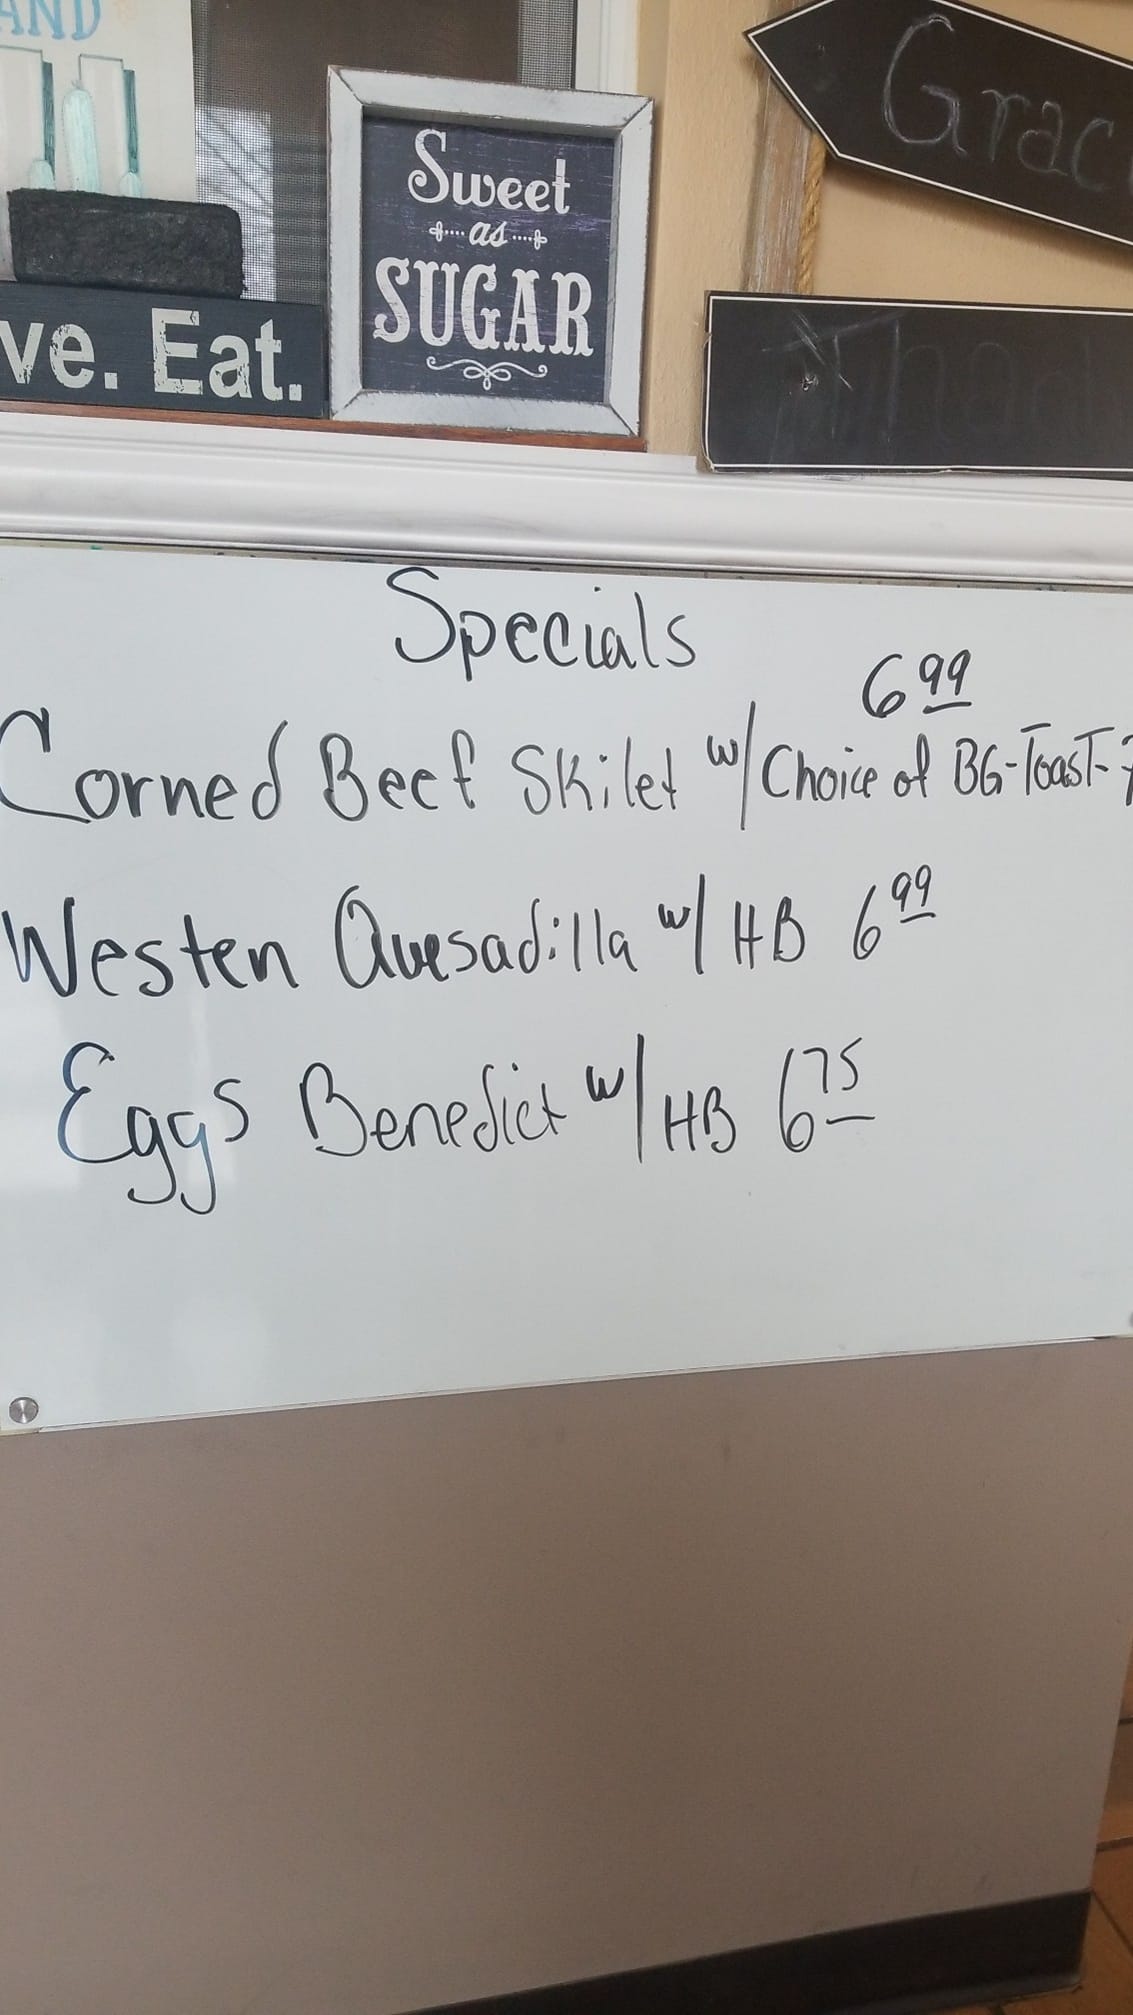 AND
ve. Eat.
Sweet
as
SUGAR
Grac
Specials
6 99
Corned Beef Skilet w/ Choice of BG-Toast-
Westen Quesadilla w/ HB 6 99
Eggs Benedict w/ HB 6 75